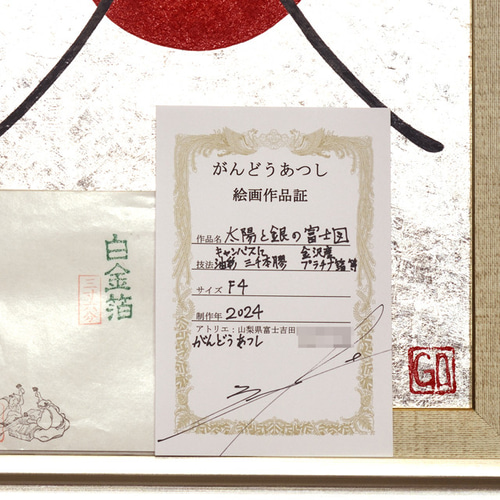 がんどうあつし
絵画作品証
作品名 太陽と銀の富士図
キャンバスに 金沢産
技法 油彩 三千本膠 プラチナ箔 等
サイズ F4
制作年 2024
アトリエ:山梨県富士吉田
がんどうあつし
白金箔
GO